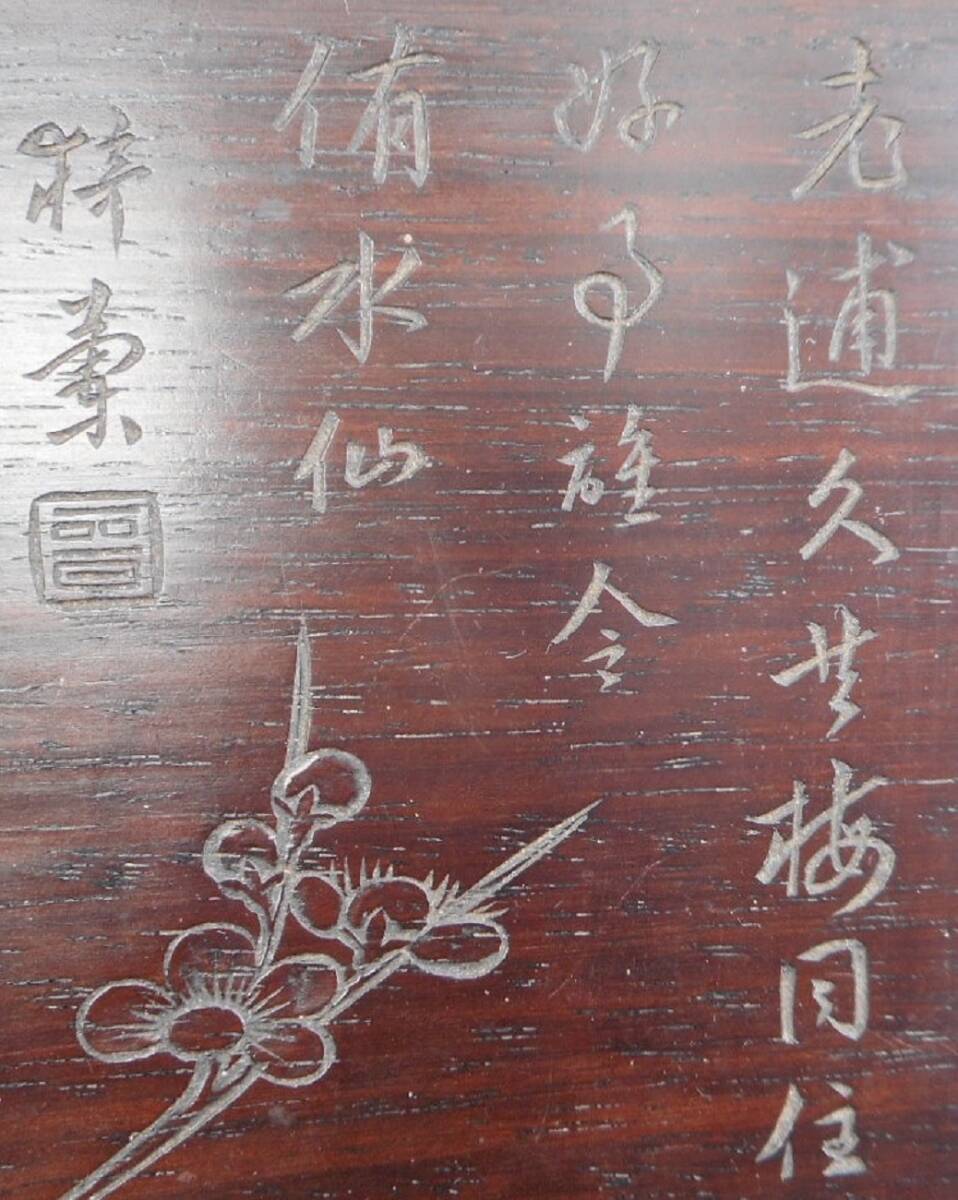 老逋久共梅同住
好事誰令
侑水仙
梓蘭